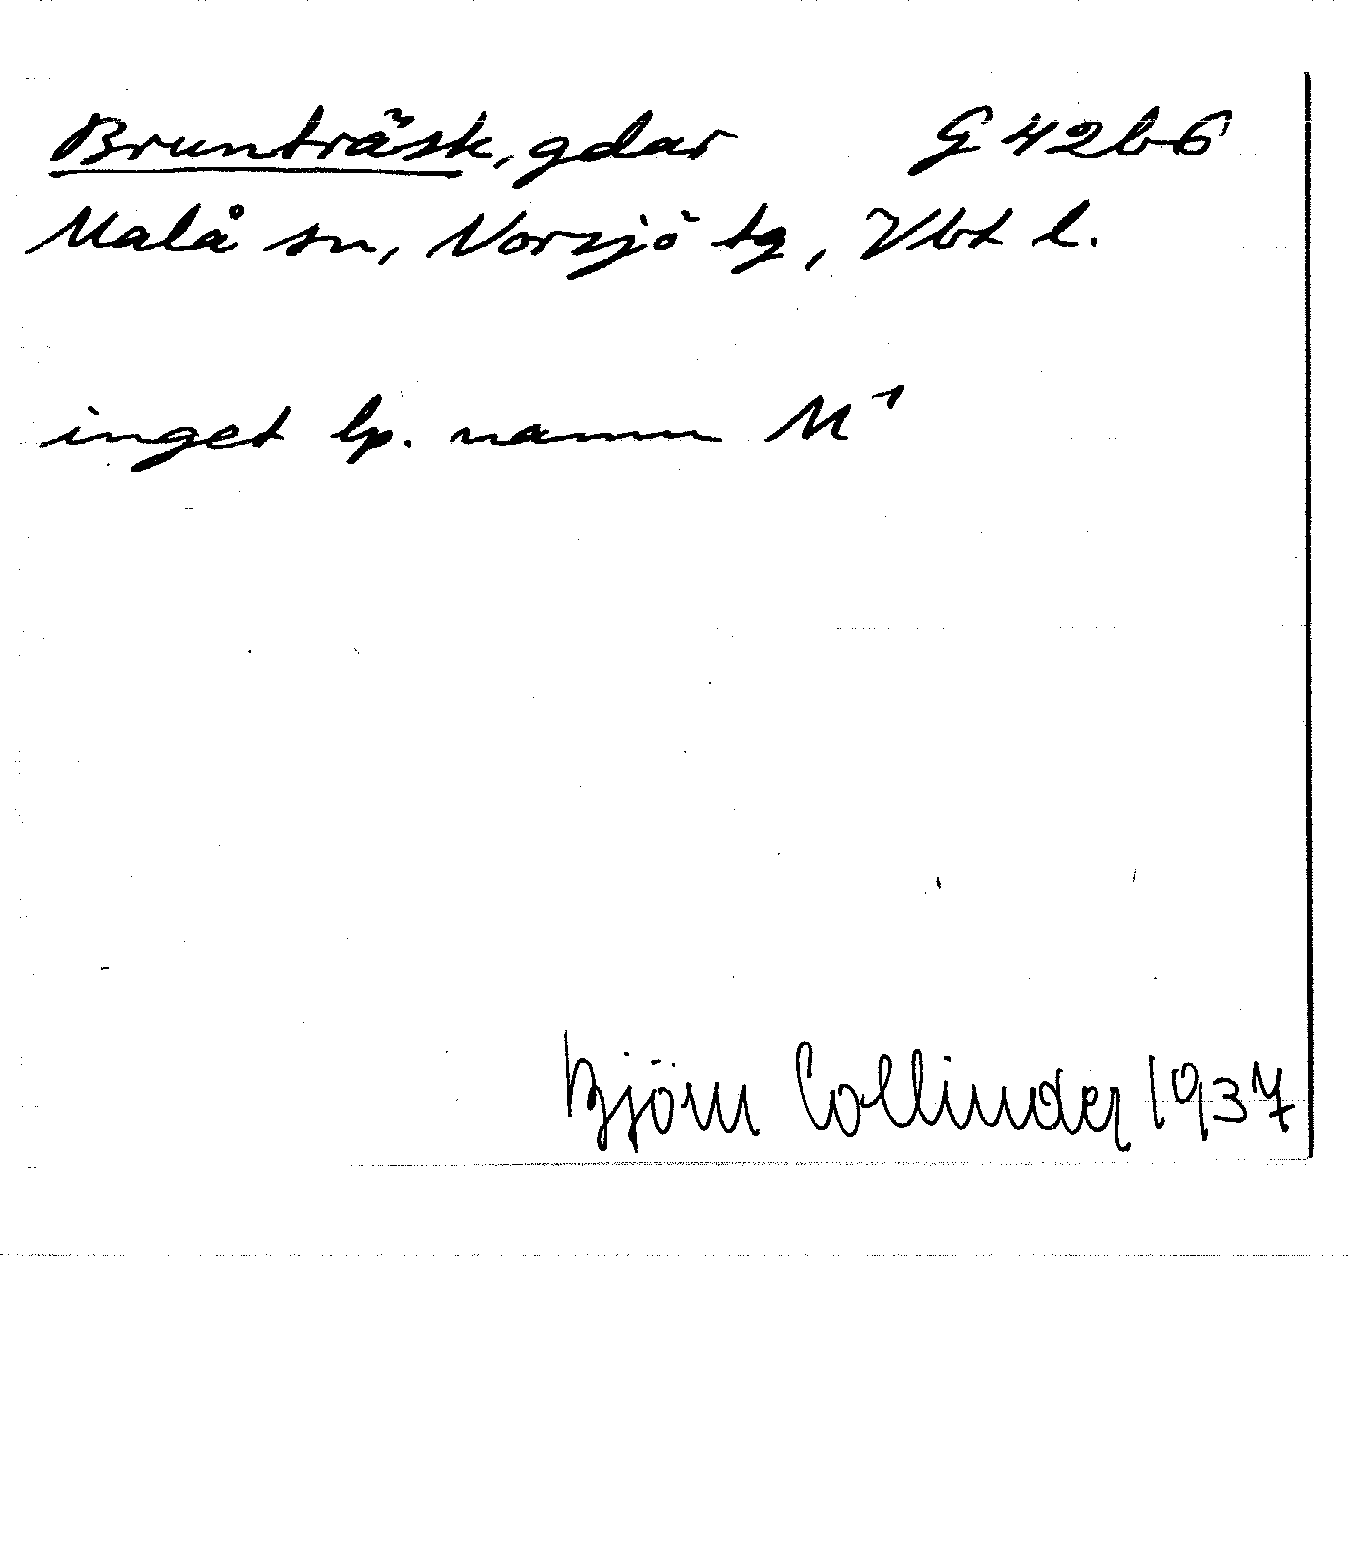 Brunträsk, gdar G 42b6
Malå sn, Norsjö tg, Vbt l.
inget lp. namn M¹
Björn Collinder 1937